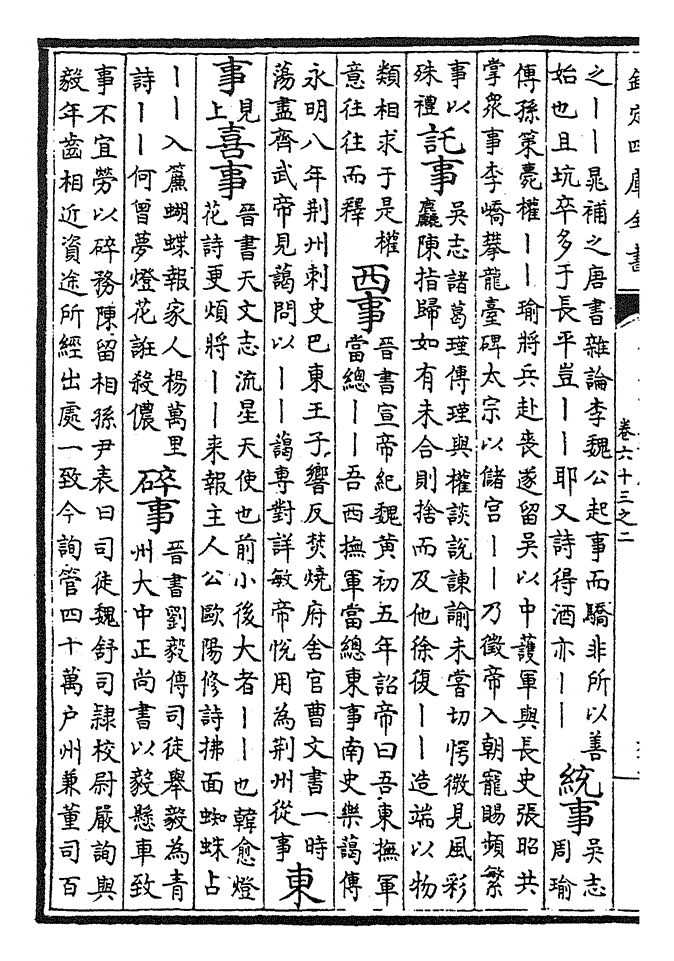 欽定四庫全書
卷六十三之二
之——晁補之唐書雜論李魏公起事而驕非所以善
始也且坑卒多于長平豈——耶又詩得酒亦——
統事
吳志
周瑜
傳孫策薨權——瑜將兵赴喪遂留吳以中護軍與長史張昭共
掌衆事李嶠攀龍臺碑太宗以儲宮——乃徵帝入朝寵賜頻繁
事以
殊禮
託事
吳志諸葛瑾傳瑾與權談說諫諭未嘗切愕微見風彩
麤陳指歸如有未合則捨而及他徐復——造端以物
類相求于是權
意往往而釋
西事
晉書宣帝紀魏黃初五年詔帝曰吾東撫軍
當總——吾西撫軍當總東事南史樂藹傳
永明八年荆州刺史巴東王子響反焚燒府舍官曹文書一時
蕩盡齊武帝見藹問以——藹專對詳敏帝悅用為荆州從事
東
事
見
上
喜事
晉書天文志流星天使也前小後大者——也韓愈燈
花詩更煩將——来報主人公歐陽修詩拂面蜘蛛占
——入簾蝴蝶報家人楊萬里
詩——何曾夢燈花誑殺儂
碎事
晉書劉毅傳司徒舉毅為青
州大中正尚書以毅懸車致
事不宜勞以碎務陳留相孫尹表曰司徒魏舒司隸校尉嚴詢與
毅年齒相近資途所經出處一致今詢管四十萬户州兼董司百